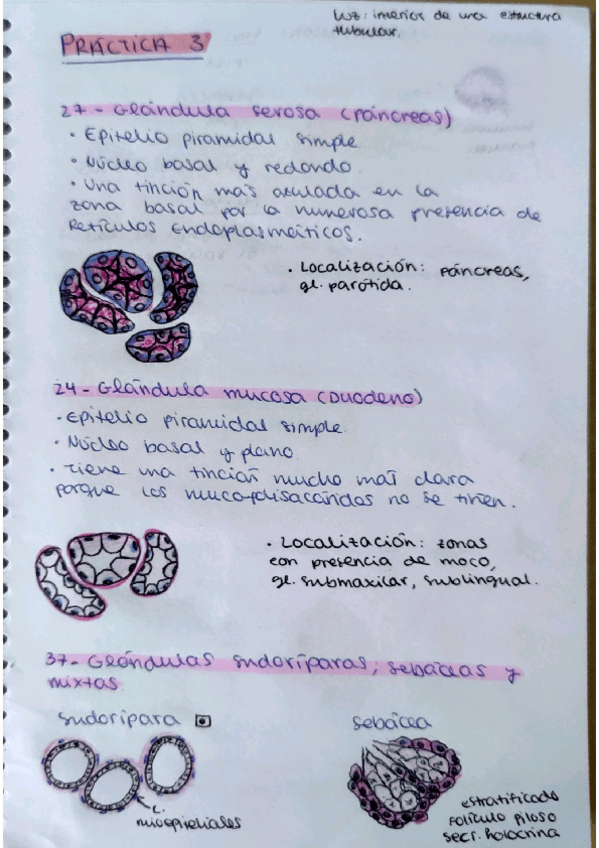 Luz: interior de una estructura
tubular.
PRÁCTICA 3
27 - Glándula serosa (Páncreas)
· Epitelio piramidal simple
· Núcleo basal y redondo
· Una tinción más aculada en la
zona basal por la numerosa presencia de
Retículos Endoplasmáticos.
· Localización: páncreas,
gl. parótida.
24 - Glándula mucosa (Duodeno)
· Epitelio piramidal simple.
· Núcleo basal y plano
· Tiene una tinción mucho más clara
porque los mucopolisacáridos no se tiñen.
· Localización: zonas
con presencia de moco,
gl. submaxilar, sublingual.
37 - Glándulas sudoríparas, sebáceas y
mixtas.
Sudorípara
Sebácea
c.
mioepiteliales
estratificado
Folículo piloso
secr. holocrina